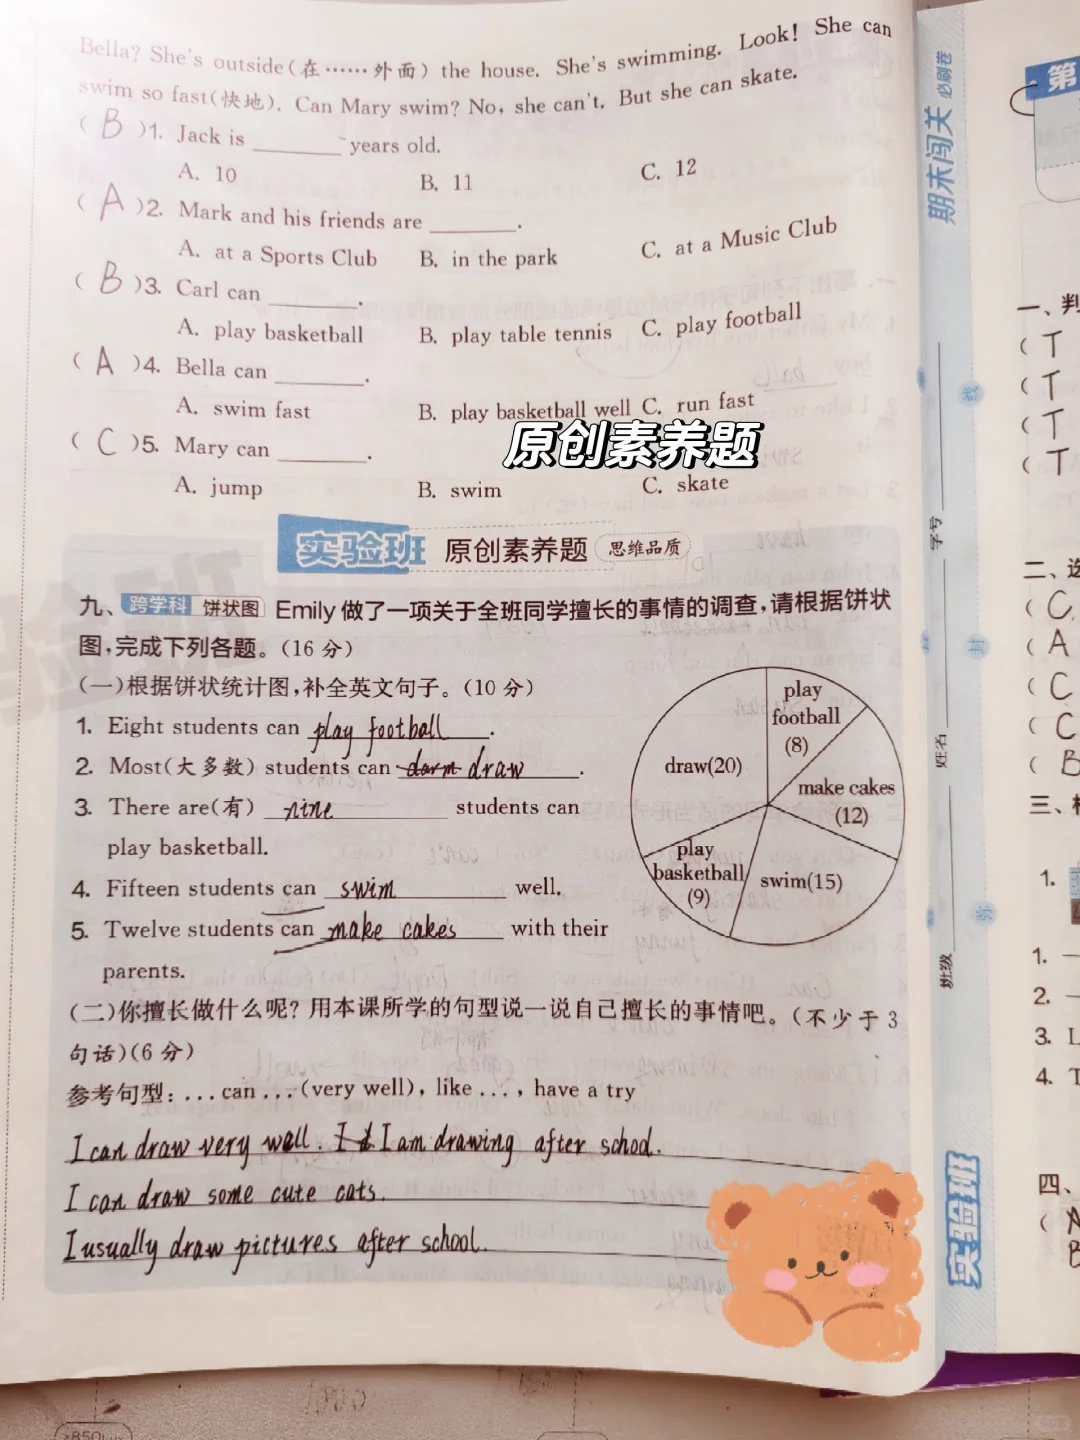 Bella? She's outside(在……外面) the house. She's swimming. Look! She can
swim so fast(快地). Can Mary swim? No, she can't. But she can skate.
( B )1. Jack is ________ years old.
A. 10 B. 11 C. 12
( A )2. Mark and his friends are ________.
A. at a Sports Club B. in the park C. at a Music Club
( B )3. Carl can ________.
A. play basketball B. play table tennis C. play football
( A )4. Bella can ________.
A. swim fast B. play basketball well C. run fast
原创素养题
( C )5. Mary can ________.
A. jump B. swim C. skate
实验班 原创素养题 思维品质
九、跨学科 饼状图 Emily 做了一项关于全班同学擅长的事情的调查,请根据饼状
图,完成下列各题。(16 分)
(一)根据饼状统计图,补全英文句子。(10 分)
1. Eight students can play football.
2. Most(大多数) students can draw.
3. There are(有) nine students can
play basketball.
4. Fifteen students can swim well.
5. Twelve students can make cakes with their
parents.
play
football
(8)
draw(20)
make cakes
(12)
play
basketball
(9)
swim(15)
(二)你擅长做什么呢? 用本课所学的句型说一说自己擅长的事情吧。(不少于 3
句话)(6 分)
参考句型:...can...(very well), like..., have a try
I can draw very well. I am drawing after school.
I can draw some cute cats.
I usually draw pictures after school.
期末闯关 必刷卷
学号
姓名
班级
线
封
弥
实验班
第
一、判
( T
( T
( T
( T
二、选
( C
( A
( C
( C
( B
三、根
1.
1.
2.
3. L
4. T
四、
( A
B